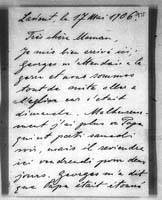 Lorient, le 17 Mai 1906
Très chère Maman,
Je suis bien arrivé ici;
Georges m'attendait à la
gare et nous sommes
tout de suite allés à
l'église car c'était
dimanche. Malheureu-
sement j'ai plus vu Papa
qui est parti samedi
soir, mais il reviendra
ici vendredi pour deux
jours, Georges m'a dit
que Papa était étonné